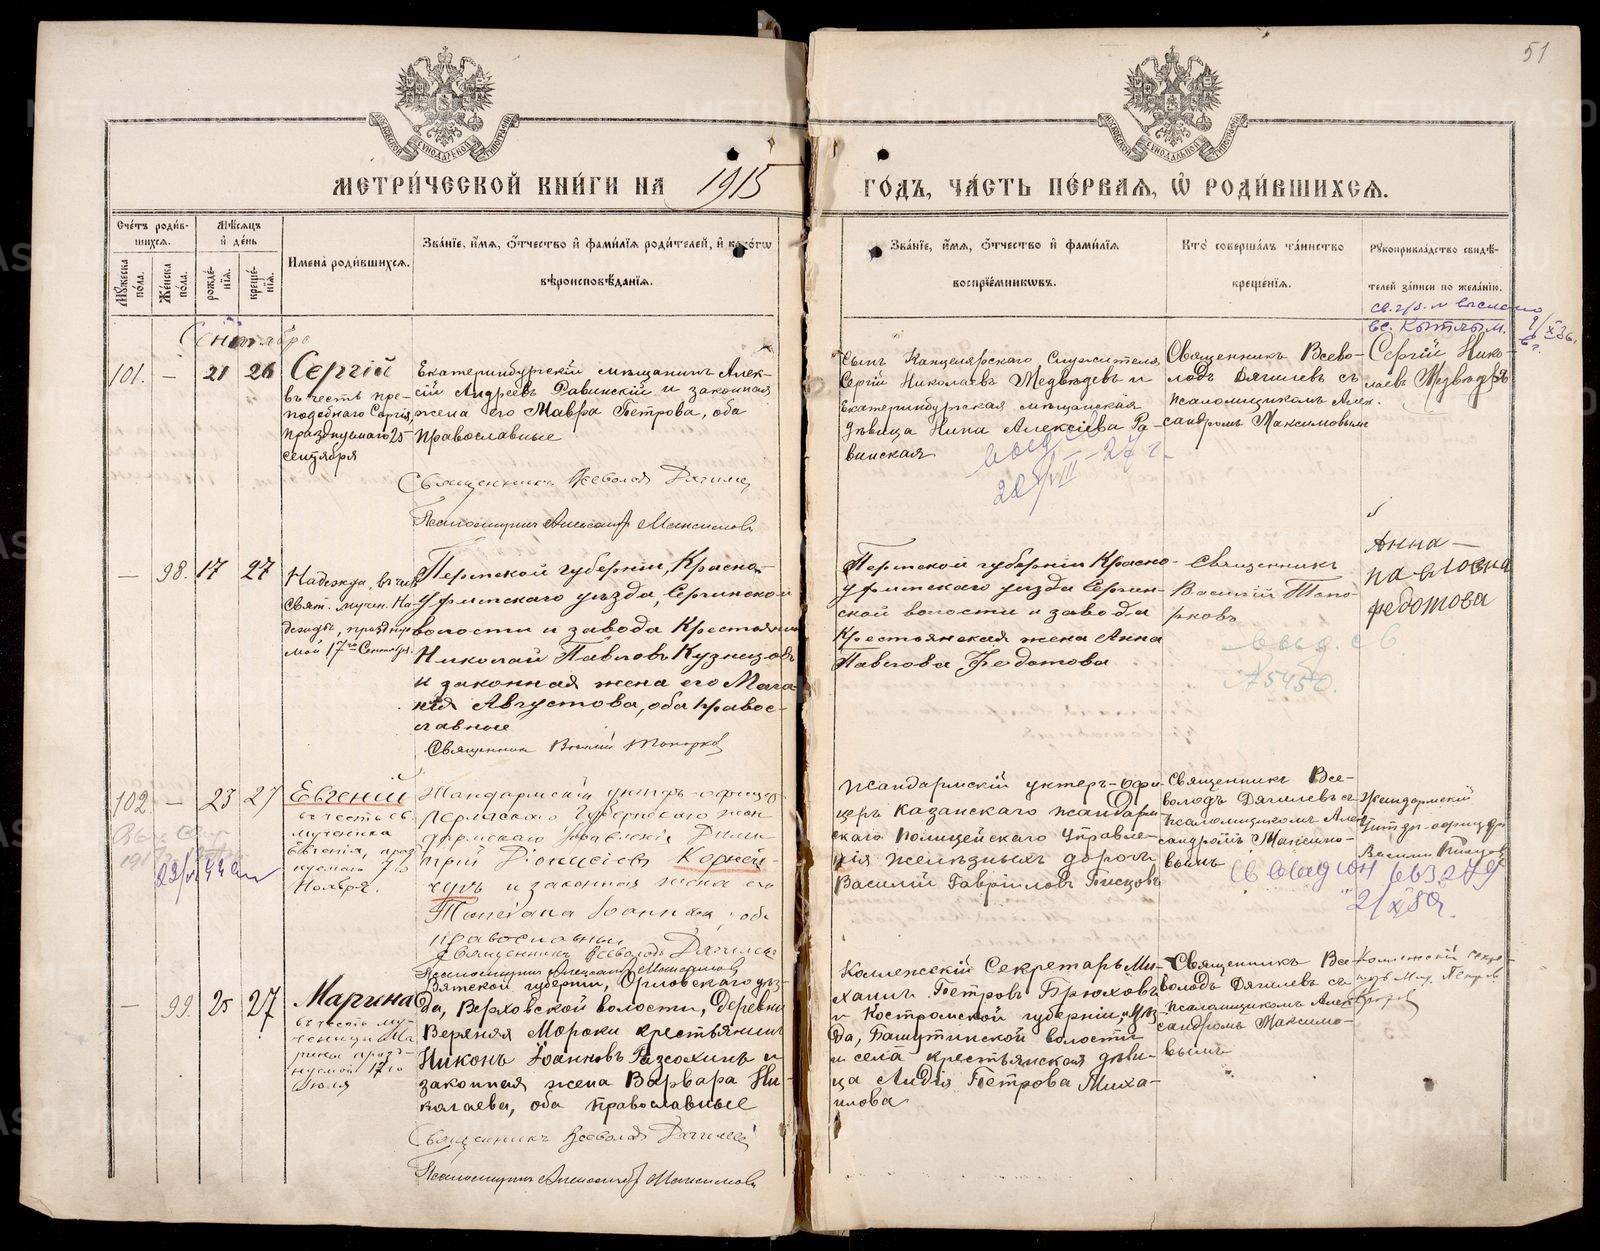 51
МОСКОВСКОЙ СѴНОДАЛЬНОЙ ТИПОГРАФІИ
МОСКОВСКОЙ СѴНОДАЛЬНОЙ ТИПОГРАФІИ
МЕТРИ́ЧЕСКОЙ КНИ́ГИ НА 1915 ГО́ДЪ, ЧА́СТЬ ПЕ́РВАЯ, Ѡ҆ РОДИ́ВШИХСЯ.
Сче́тъ роди́в-
шихся.
Мѣ́сяцъ
и҆ де́нь
Мꙋ́жеска по́ла.
Же́нска по́ла.
рожде́-
нїя.
креще́-
нїя.
И҆мена̀ роди́вшихся.
Зва́нїе, и҆́мя, ѻ҆́тчество и҆ фами́лїя роди́телей, и҆ како́гѡ
вѣроисповѣ́данїя.
Зва́нїе, и҆́мя, ѻ҆́тчество и҆ фами́лїя
воспрїе́мникѡвъ.
Кто̀ соверша́лъ та́инство
креще́нїя.
Рꙋкоприкла́дство свидѣ́-
телей за́писи по жела́нїю.
Сентябрь
101. — 21 26
Сергій
въ честь пре-
подобнаго Сергія,
празднуемаго 25
сентября
Екатеринбургскій мѣщанинъ Алек-
сій Андреевъ Равинскій и законная
жена его Мавра Петрова, оба
православные
Священникъ Всеволодъ Дягилевъ
Псаломщикъ Александръ Максимовъ
Сынъ Канцелярскаго Служителя
Сергій Николаевъ Медвѣдевъ и
Екатеринбургская мѣщанская
дѣвица Нина Алексіева Ра-
винская
22/VIII-27 г.
Священникъ Всево-
лодъ Дягилевъ съ
псаломщикомъ Алек-
сандромъ Максимовымъ
Сергій Нико-
лаевъ Медвѣдевъ
— 98. 17 27
Надежда, въ честь
Свят. мучен. На-
дежды, празднуе-
мой 17го Сентябр.
Пермской губерніи, Красно-
уфимскаго уѣзда, Сергинской
волости и завода Крестьянинъ
Николай Павловъ Кузнецовъ
и законная жена его Мела-
нія Августова, оба право-
славные
Священник Василій Топорков
Пермской губерніи Красно-
уфимскаго уѣзда Сергин-
ской волости и завода
Крестьянская жена Анна
Павлова Федотова
Священникъ
Василій Топо-
рковъ
выд. св.
№ 5450.
Анна
Павловна
Федотова
102 — 23 27
22/VI 44
Евгеній
въ честь св.
мученика
Евгенія, праз-
нуемаго 7го
Ноября.
Жандармскій унтеръ-офицеръ
Пермскаго Губернскаго жан-
дармскаго Управленія Дими-
трій Діонисіевъ Корней-
чукъ и законная жена его
Іоаннова, оба
православные
Священникъ Всеволодъ Дягилевъ
Псаломщикъ Александръ Максимовъ
Жандармскій унтеръ-офи-
церъ Казанскаго жандарм-
скаго Полицейскаго Управле-
нія желѣзныхъ дорогъ
Василій Гавріиловъ Писцовъ
Священникъ Все-
володъ Дягилевъ съ
псаломщикомъ Алек-
сандромъ Максимо-
вымъ
Жандармскій
Унтеръ-офицеръ
Василій Писцовъ
— 99. 25 27
Марина
въ честь му-
ченицы Ма-
рины праз-
нуемой 17го
Іюля
Вятской губерніи, Орловскаго уѣз-
да, Верховской волости, деревни
Верхняя Мороки крестьянинъ
Никонъ Іоанновъ Разсохинъ и
законная жена Варвара Ни-
колаева, оба православные
Священникъ Всеволодъ Дягилевъ
Псаломщикъ Александръ Максимовъ
Коллежскій Секретарь Ми-
хаилъ Петровъ Брюховъ
и Костромской губерніи, уѣз-
да, Башутинской волости
и села крестьянская дѣви-
ца Лидія Петрова Миха-
илова
Священникъ Все-
володъ Дягилевъ съ
псаломщикомъ Алек-
сандромъ Максимо-
вымъ
Коллежскій секре-
тарь Мих. Петров.
Брюхов
METRIKI.GASO-URAL.RU